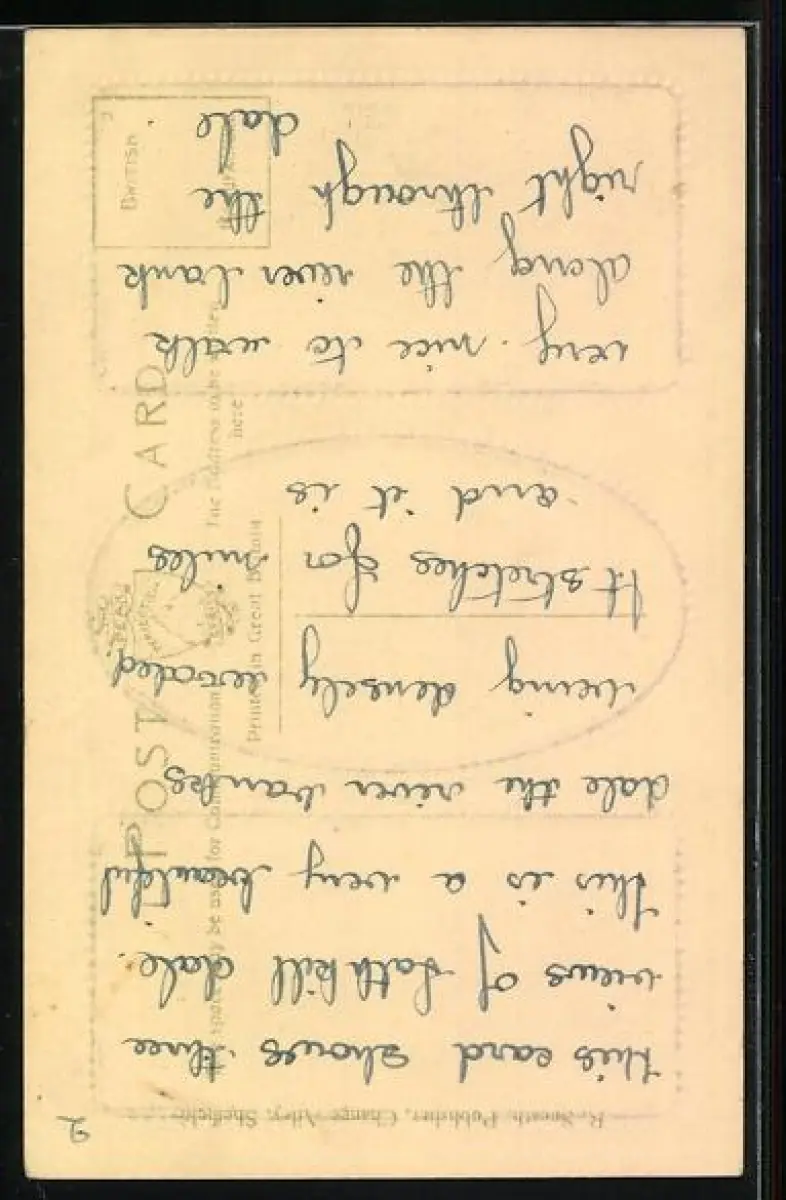 2
this card shows three
views of Lathkill dale.
this is a very beautiful
dale the river banks
being densely wooded.
It stretches for miles
and it is
very nice to walk
along the river bank
right through the
dale.
POST CARD
Printed in Great Britain
The Address to be written
here
BRITISH
Publisher, Change Alley, Sheffield